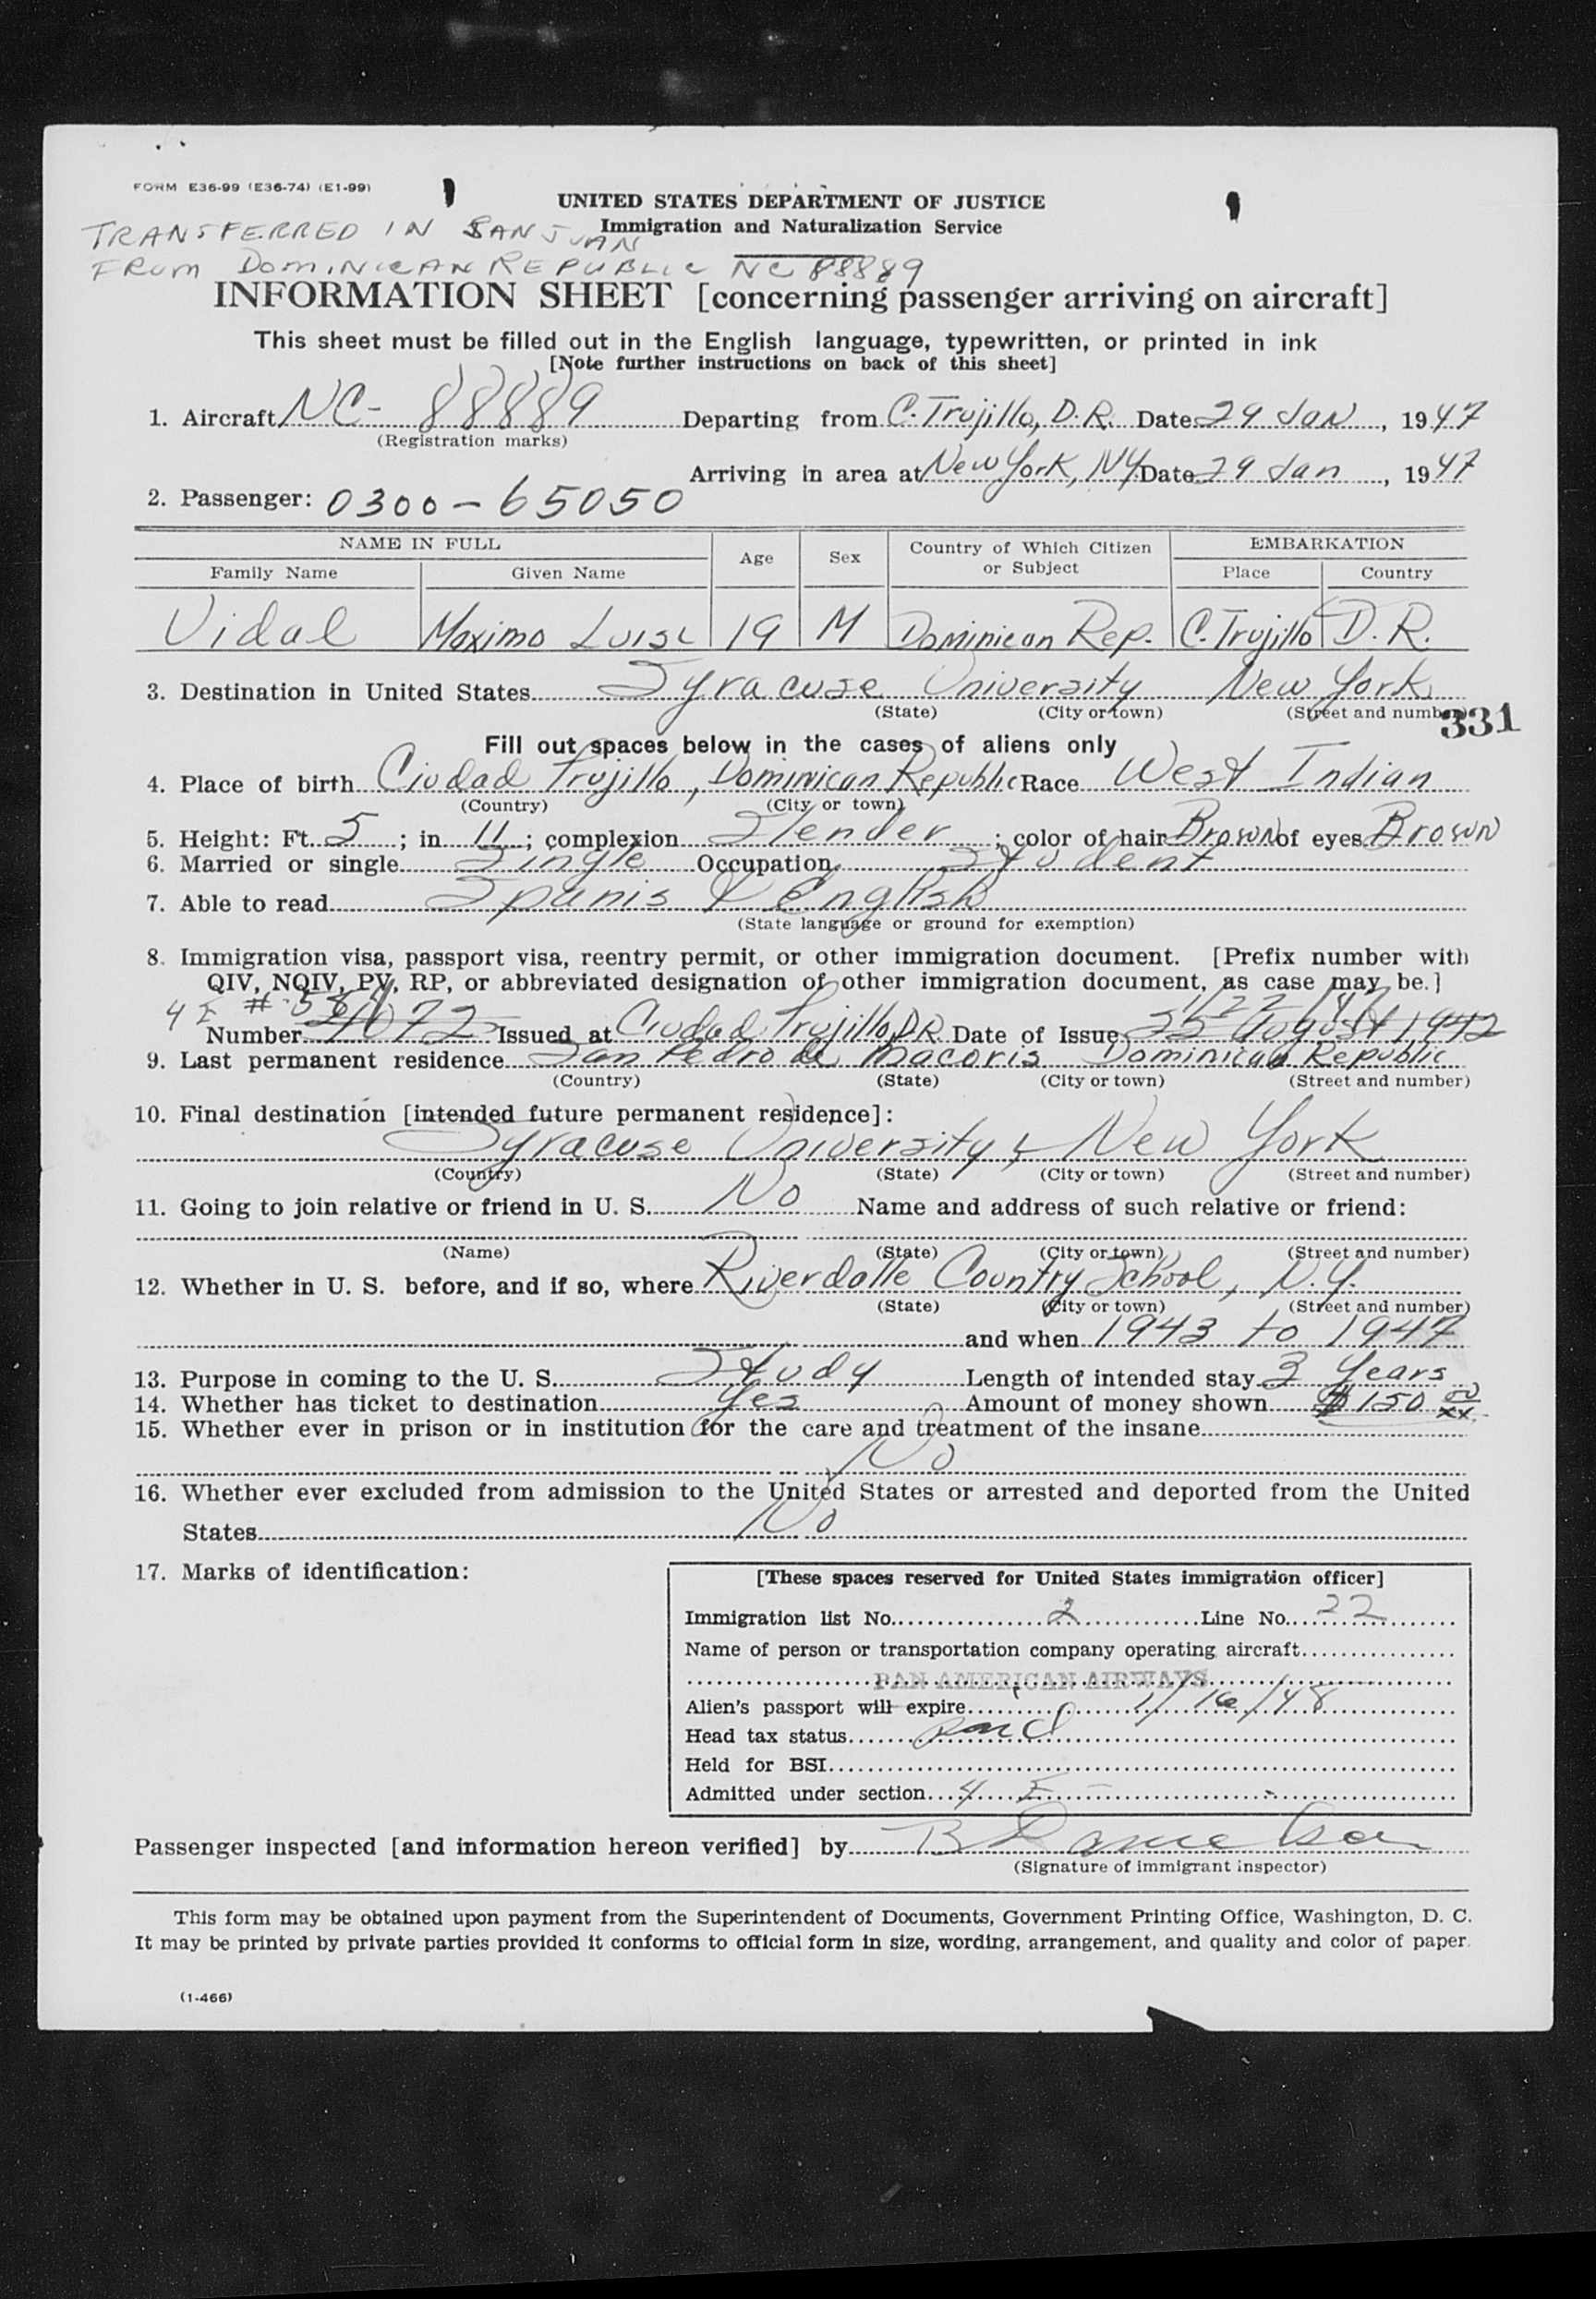 FORM E36-99 (E36-74) (E1-99)
UNITED STATES DEPARTMENT OF JUSTICE
Immigration and Naturalization Service
TRANSFERRED IN SAN JUAN
FROM DOMINICAN REPUBLIC NC 88889
INFORMATION SHEET [concerning passenger arriving on aircraft]
This sheet must be filled out in the English language, typewritten, or printed in ink
[Note further instructions on back of this sheet]
1. Aircraft NC- 88889 Departing from C. Trujillo, D.R. Date 29 Jan, 1947
(Registration marks)
Arriving in area at New York, NY Date 29 Jan, 1947
2. Passenger: 0300-65050
NAME IN FULL Age Sex Country of Which Citizen or Subject EMBARKATION
Family Name Given Name Place Country
Vidal Maximo Luis 19 M Dominican Rep. C. Trujillo D.R.
3. Destination in United States Syracuse University New York
(State) (City or town) (Street and number)
331
Fill out spaces below in the cases of aliens only
4. Place of birth Ciudad Trujillo, Dominican Republic Race West Indian
(Country) (City or town)
5. Height: Ft. 5; in 11; complexion Slender; color of hair Brown of eyes Brown
6. Married or single Single Occupation Student
7. Able to read Spanis & English
(State language or ground for exemption)
8. Immigration visa, passport visa, reentry permit, or other immigration document. [Prefix number with
QIV, NQIV, PV, RP, or abbreviated designation of other immigration document, as case may be.]
4 E #
Number Issued at Ciudad Trujillo, D.R. Date of Issue 25 August 1942
9. Last permanent residence San Pedro de Macoris Dominican Republic
(Country) (State) (City or town) (Street and number)
10. Final destination [intended future permanent residence]:
Syracuse University, New York
(Country) (State) (City or town) (Street and number)
11. Going to join relative or friend in U. S. No Name and address of such relative or friend:
(Name) (State) (City or town) (Street and number)
12. Whether in U. S. before, and if so, where Riverdalle Country School, N.Y.
(State) (City or town) (Street and number)
and when 1943 to 1947
13. Purpose in coming to the U. S. Study Length of intended stay 3 Years
14. Whether has ticket to destination Yes Amount of money shown $150 00/xx
15. Whether ever in prison or in institution for the care and treatment of the insane
No
16. Whether ever excluded from admission to the United States or arrested and deported from the United
States No
17. Marks of identification:
[These spaces reserved for United States immigration officer]
Immigration list No. 2 Line No. 22
Name of person or transportation company operating aircraft
PAN AMERICAN AIRWAYS
Alien's passport will expire 1/16/48
Head tax status
Held for BSI
Admitted under section 4 E
Passenger inspected [and information hereon verified] by
(Signature of immigrant inspector)
This form may be obtained upon payment from the Superintendent of Documents, Government Printing Office, Washington, D. C.
It may be printed by private parties provided it conforms to official form in size, wording, arrangement, and quality and color of paper.
(1-466)